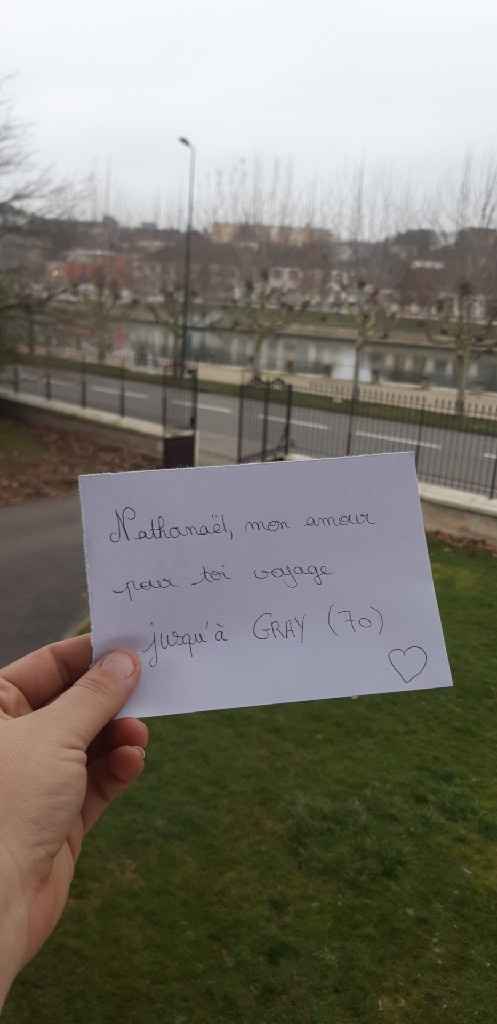 Nathanaël, mon amour
pour toi voyage
jusqu'à GRAY (70)